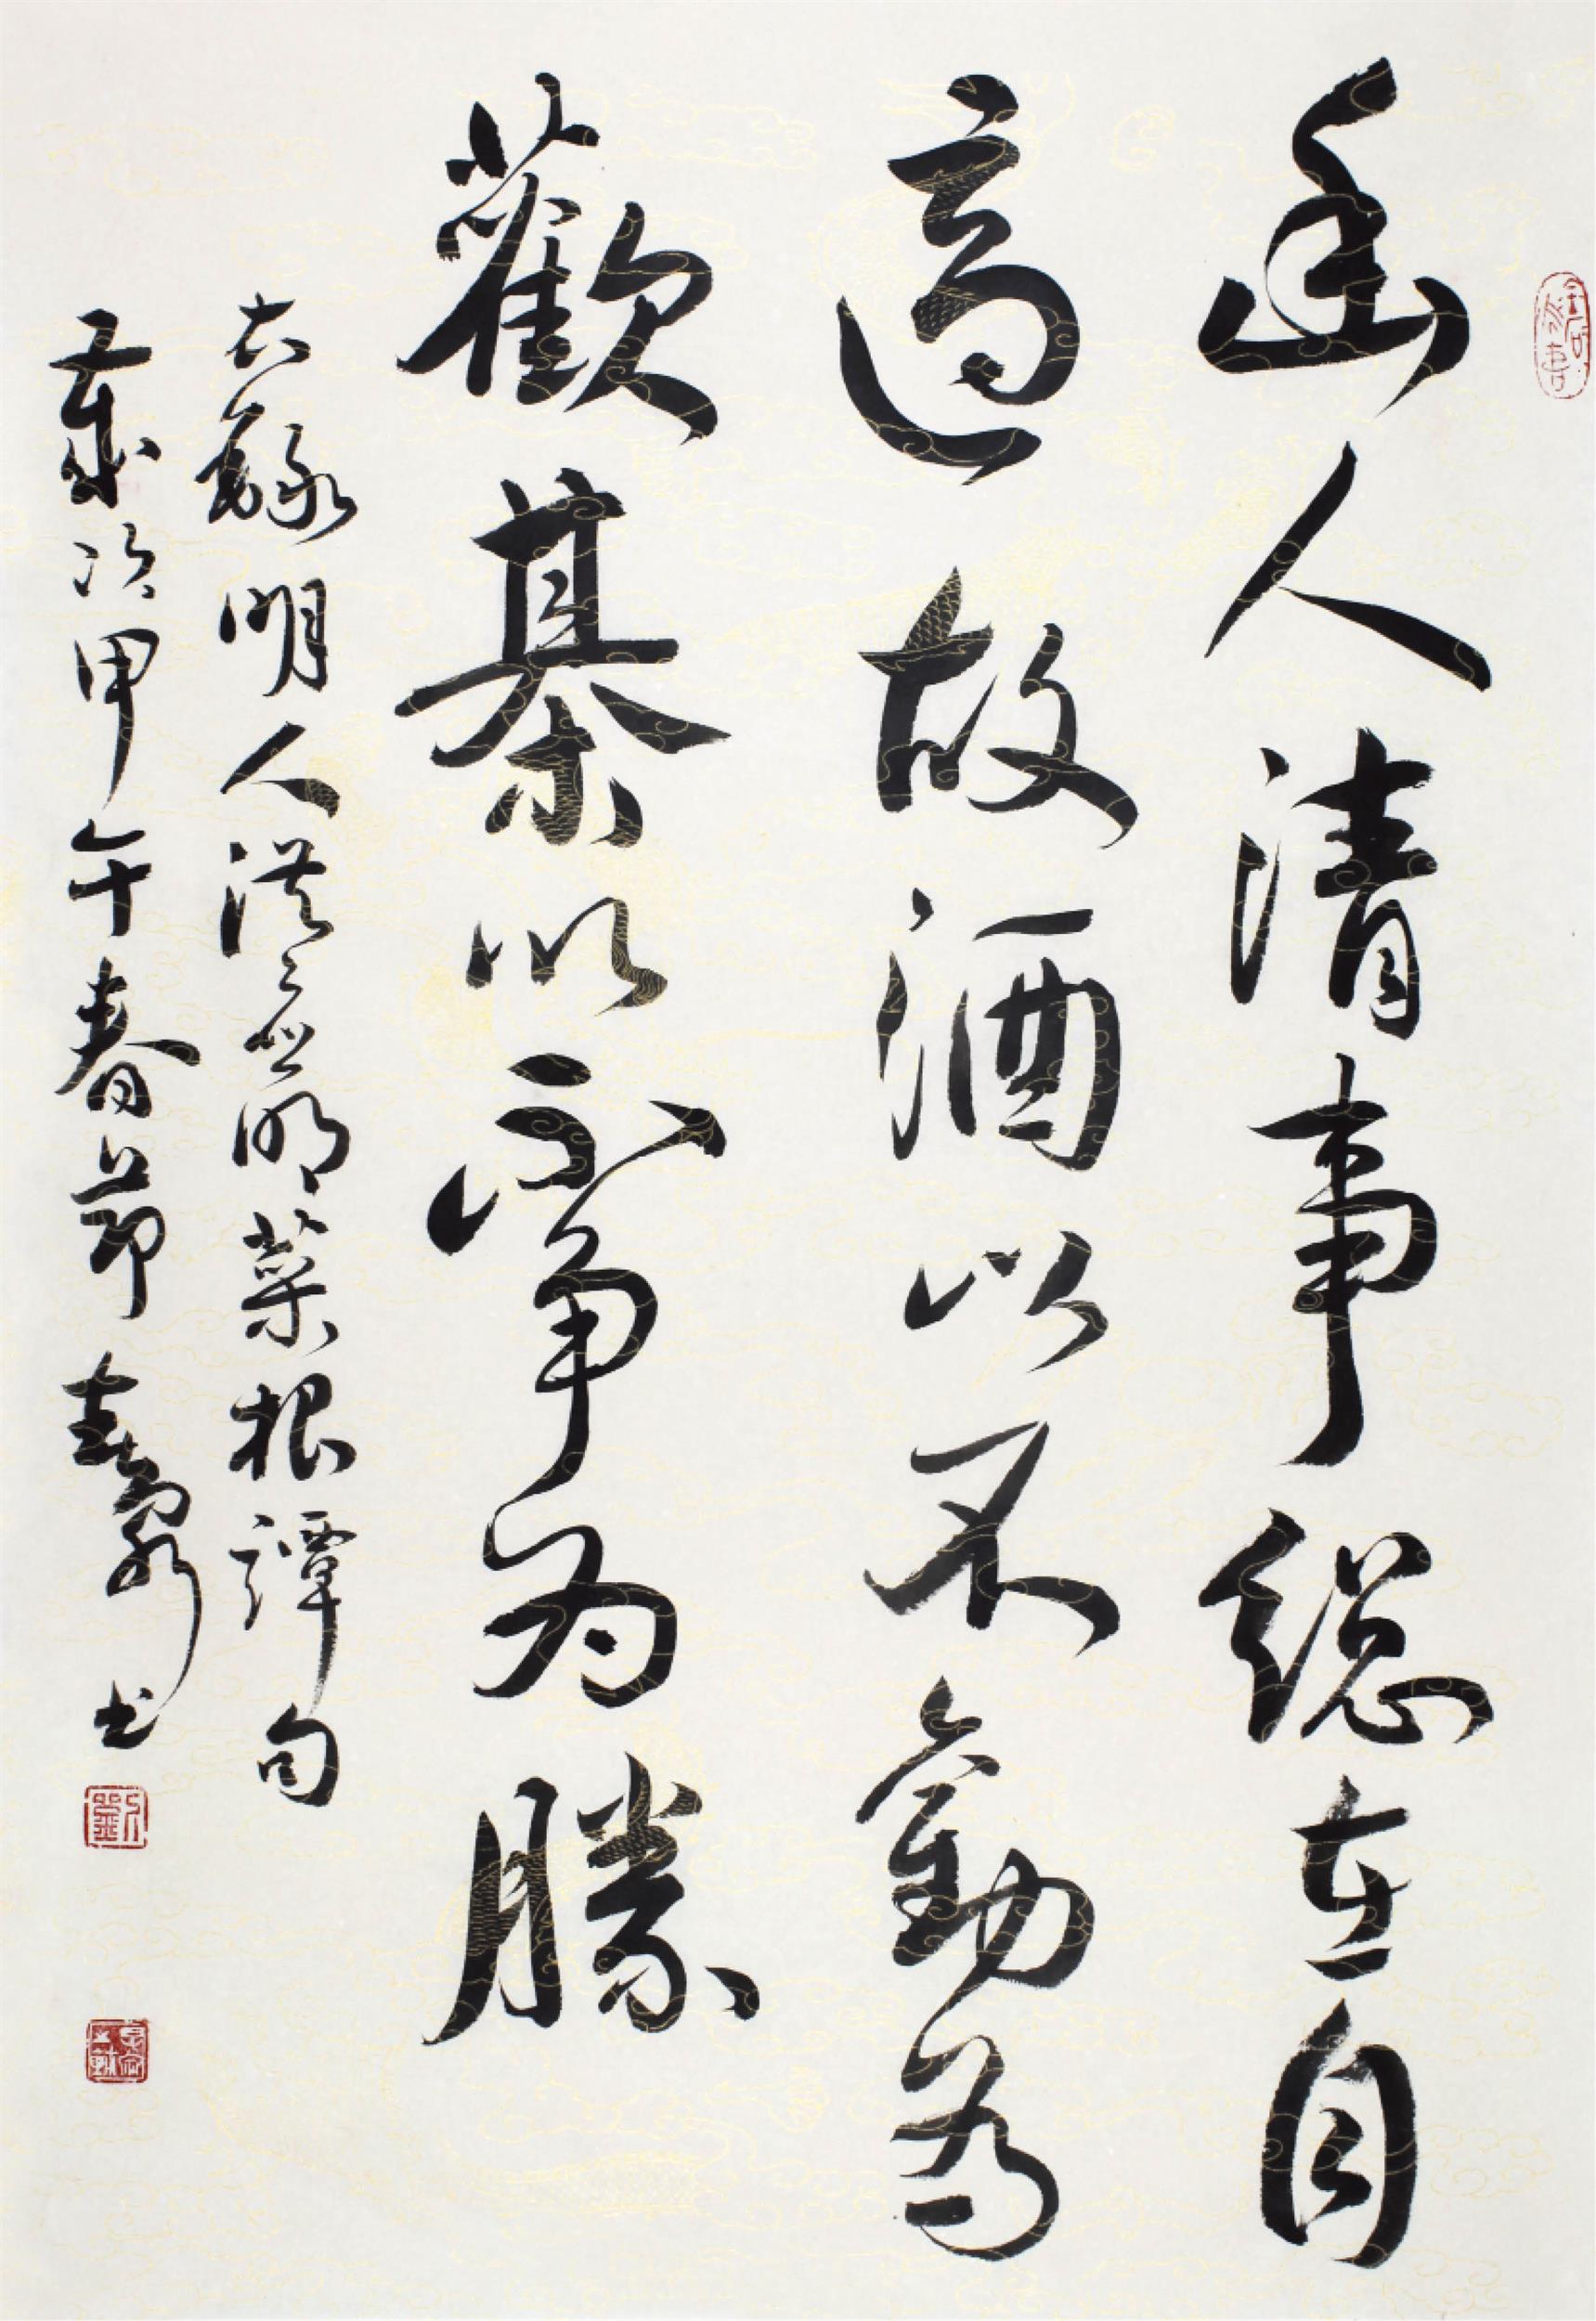 幽人清事總在自
適故酒以不勸為
歡棊以不爭為勝
右錄明人洪應明菜根譚句
歲次甲午春節書
劉